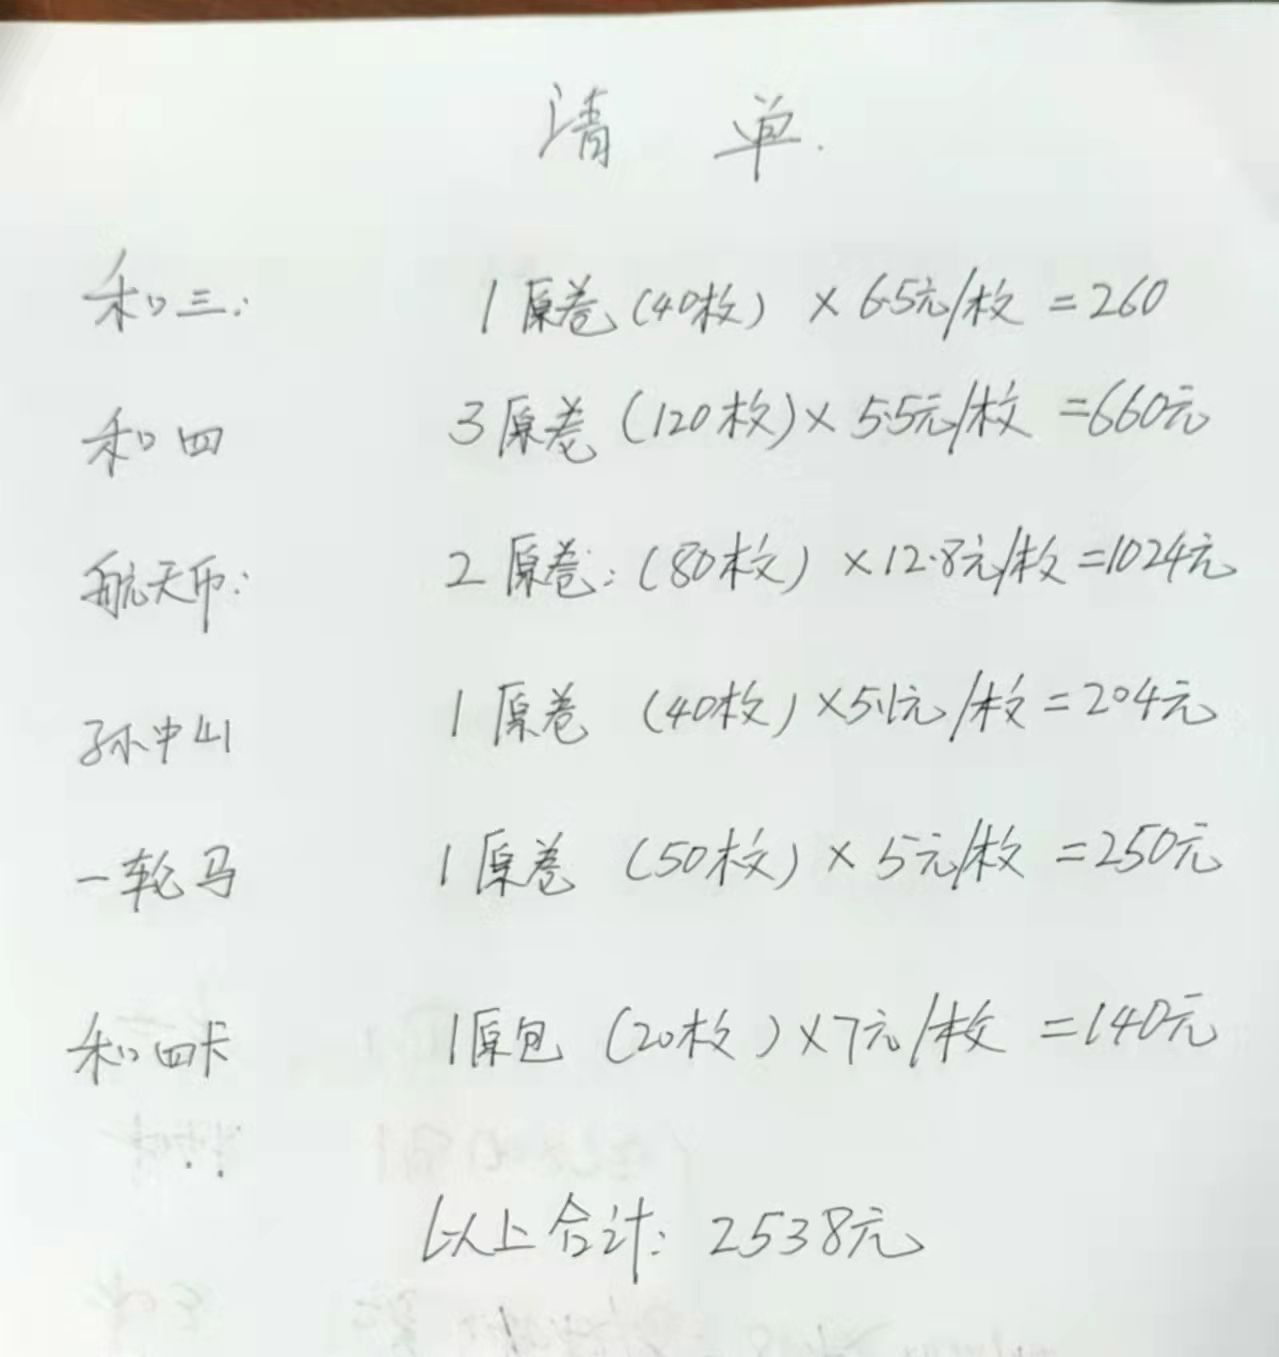 清 单.
和三: 1原卷(40枚) × 6.5元/枚 = 260
和四 3原卷(120枚)× 5.5元/枚 =660元
航天币: 2原卷:(80枚) ×12.8元/枚=1024元
孙中山 1原卷 (40枚)×5.1元/枚=204元
一轮马 1原卷 (50枚)× 5元/枚 =250元
和四卡 1原包 (20枚)×7元/枚 =140元
以上合计: 2538元